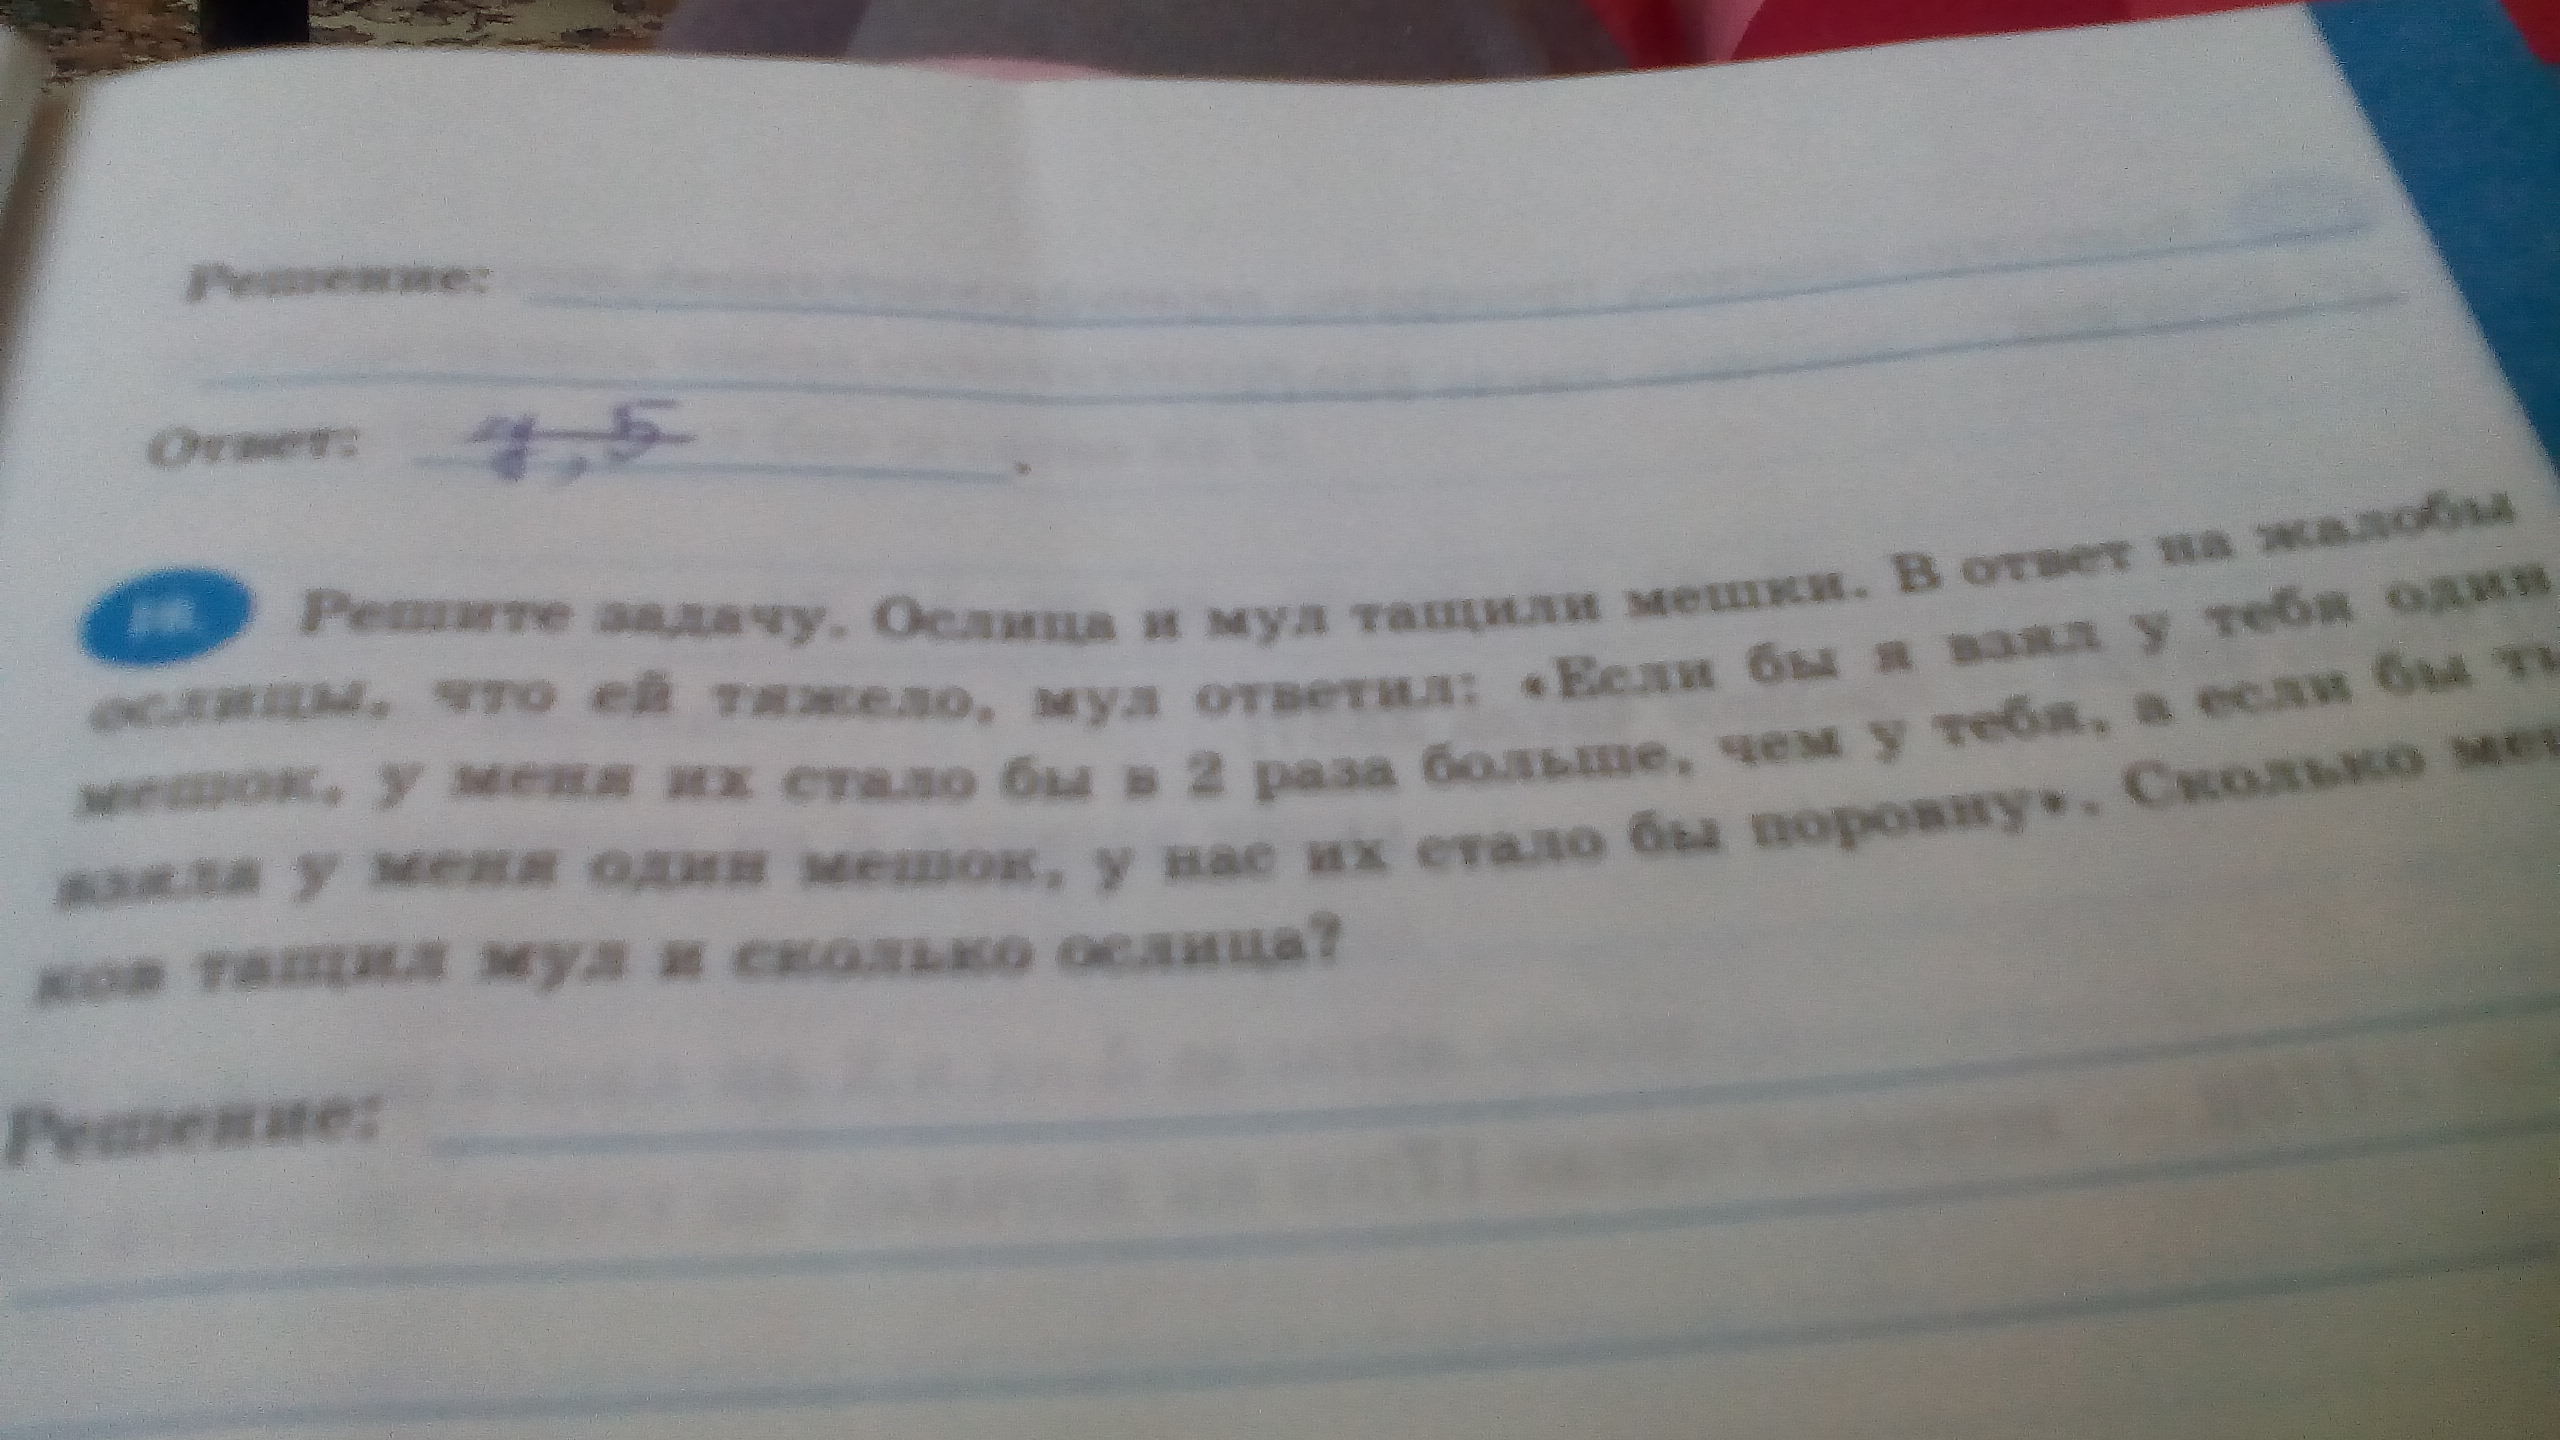 Решение:
Ответ: 4,5.
Решите задачу. Ослица и мул тащили мешки. В ответ на жалобы
ослицы, что ей тяжело, мул ответил: «Если бы я взял у тебя один
мешок, у меня их стало бы в 2 раза больше, чем у тебя, а если бы ты
взяла у меня один мешок, у нас их стало бы поровну». Сколько меш
ков тащил мул и сколько ослица?
Решение: